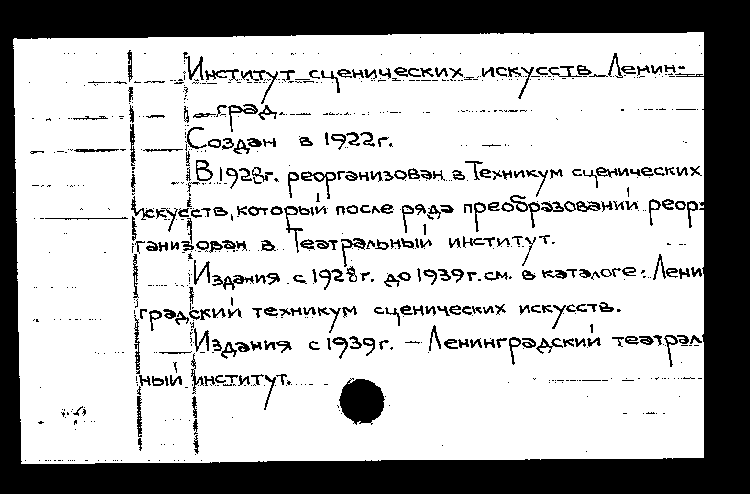 Институт сценических искусств Ленин-
град.
Создан в 1922г.
В 1928г. реорганизован в Техникум сценических
искусств, который после ряда преобразований реор-
ганизован в Театральный институт.
Издания с 1928г. до 1939г. см. в каталоге: Ленин
градский техникум сценических искусств.
Издания с 1939г. – Ленинградский театраль
ный институт.